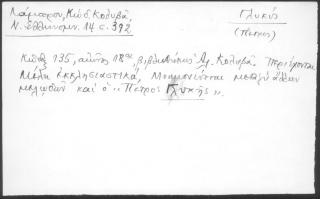 Λάμπρου, Κώδ. Κολυβᾶ,
Ν. Ἑλληνομν. 14 σ. 392
Γλυκύς
(Πέτρος)
Κῶδ. 135, αἰῶνος 18ου, βιβλιοθήκης Ἀλ. Κολυβᾶ. Περιέχονται
Μέλη ἐκκλησιαστικά. Μνημονεύεται μεταξὺ ἄλλων
μελωδῶν καὶ ὁ "Πέτρος Γλυκής".